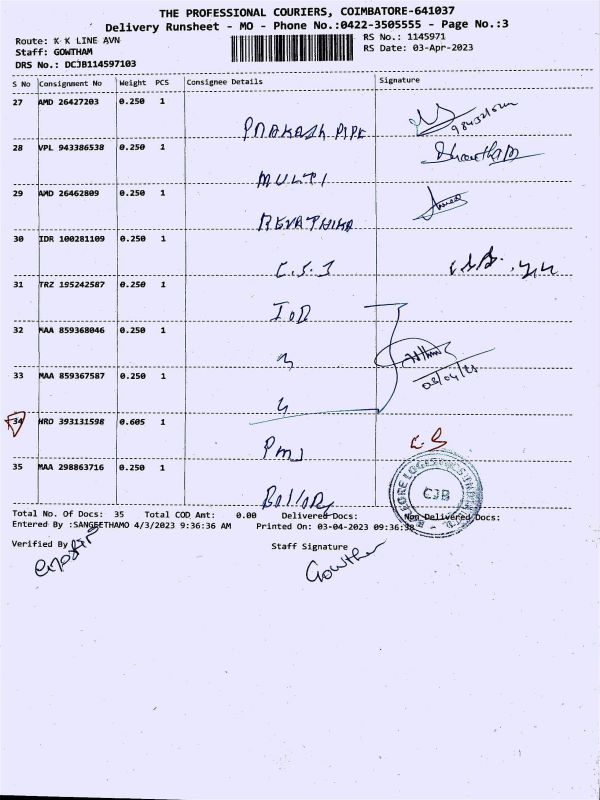 THE PROFESSIONAL COURIERS, COIMBATORE-641037
Delivery Runsheet - MO - Phone No.:0422-3505555 - Page No.:3
Route: K K LINE AVN
RS No.: 1145971
Staff: GOWTHAM
RS Date: 03-Apr-2023
DRS No.: DCJB114597103
S No Consignment No Weight PCS Consignee Details Signature
27 AMD 26427203 0.250 1
PRAKASH PIPE
28 VPL 943386538 0.250 1
MULTI
29 AMD 26462809 0.250 1
REVATHIKA
30 IDR 100281109 0.250 1
C.S.I
31 TRZ 195242587 0.250 1
IOB
32 KAA 859368046 0.250 1
33 MAA 859367587 0.250 1
34 HRO 393131598 0.605 1
PMJ
35 MAA 298863716 0.250 1
Total No. Of Docs: 35 Total COD Amt: 0.00 Delivered Docs: Non Delivered Docs:
CJB
Entered By :SANGEETHAMO 4/3/2023 9:36:36 AM Printed On: 03-04-2023 09:36:38
Verified By
Staff Signature
Gowtham